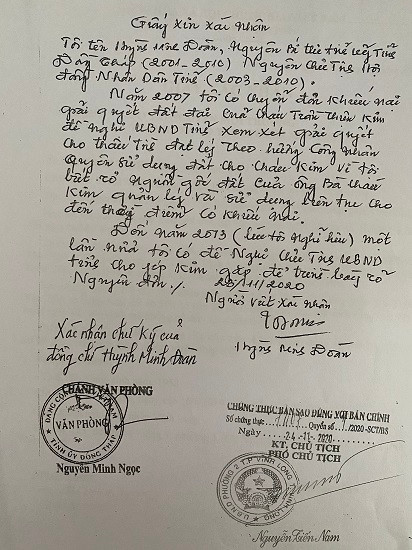 Giấy xin xác nhận
Tôi tên Huỳnh Minh Đoàn, Nguyên Bí thư Tỉnh ủy Tỉnh
Đồng Tháp (2001-2010) Nguyên Chủ Tịch Hội
đồng Nhân Dân Tỉnh (2003-2010).
Năm 2007 tôi có chuyển đơn khiếu nại
giải quyết đất đai của cháu Trần Thiên Kim
đề nghị UBND Tỉnh xem xét giải quyết
cho thấu tình đạt lý theo hướng công nhận
quyền sử dụng đất cho cháu Kim vì tôi
biết rõ nguồn gốc đất của ông Bà cháu
Kim quản lý và sử dụng liên tục cho
đến thời điểm có khiếu nại.
Đến năm 2013 (lúc tôi nghỉ hưu) một
lần nữa tôi có đề nghị Chủ Tịch UBND
tỉnh cho phép Kim gặp để trình bày rõ
nguyên đơn ./.
25/11/2020
Người viết xác nhận
Xác nhận chữ ký của
đồng chí Huỳnh Minh Đoàn
Huỳnh Minh Đoàn
CHÁNH VĂN PHÒNG
VĂN PHÒNG
TỈNH ỦY ĐỒNG THÁP
Nguyễn Minh Ngọc
CHỨNG THỰC BẢN SAO ĐÚNG VỚI BẢN CHÍNH
Số chứng thực Quyển số /2020-SCT/BS
Ngày 24-11-2020
KT. CHỦ TỊCH
PHÓ CHỦ TỊCH
U.B.N.D PHƯỜNG 2 T.P VĨNH LONG
Nguyễn Tiến Nam